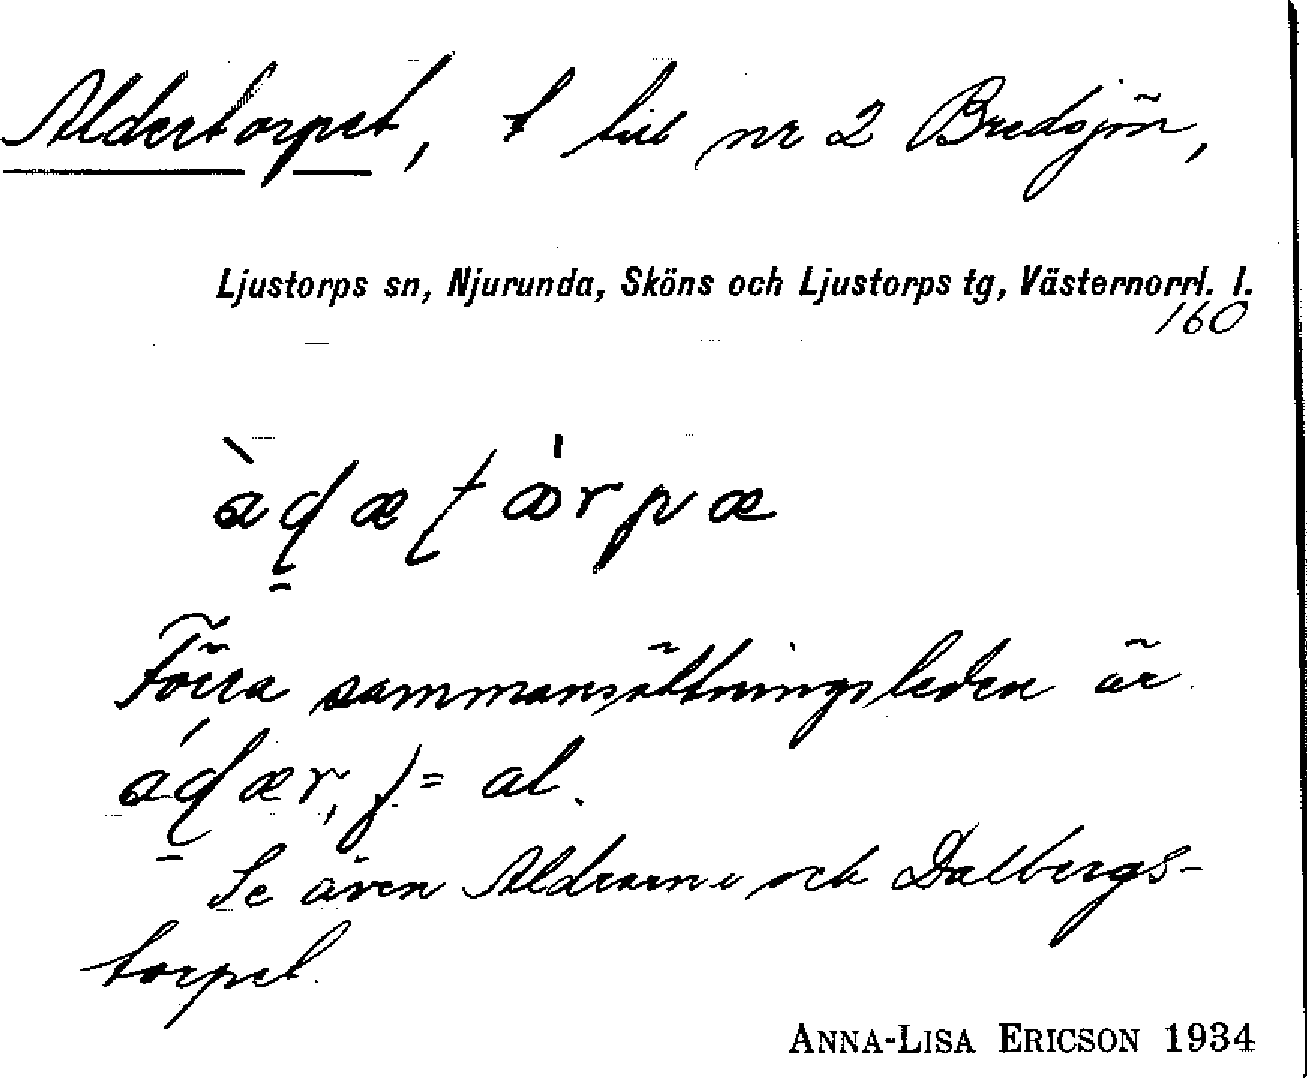 Aldertorpet, t till nr 2 Bredsjön,
Ljustorps sn, Njurunda, Sköns och Ljustorps tg, Västernorrl. l.
160
Förra sammansättningsleden är
= al.
Se även och Dalbergs-
torpet.
ANNA-LISA ERICSON 1934